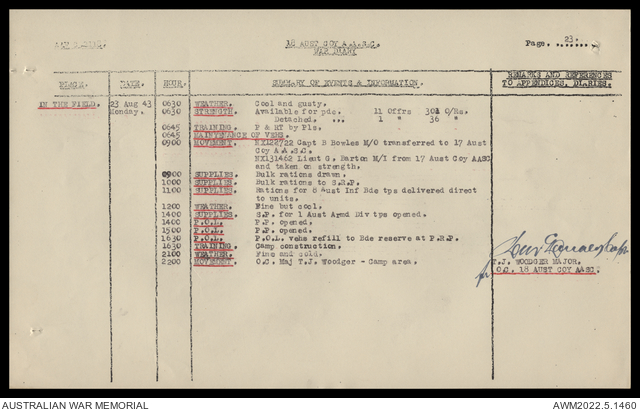 18 AUST COY A.A.S.C.
WAR DIARY
Page. 23.
PLACE. DATE. HOUR. SUMMARY OF EVENTS & INFORMATION. REMARKS AND REFERENCES
TO APPENDICES, DIARIES.
IN THE FIELD. 23 Aug 43 0630 WEATHER. Cool and gusty.
Monday. 0630 STRENGTH. Available for pde. 11 Offrs 301 O/Rs.
Detached. ... 1 " 36 "
0645 TRAINING. P & RT by Pls.
0645 MAINTENANCE OF VEHS.
0900 MOVEMENT. NX122722 Capt B Bowles M/O transferred to 17 Aust
Coy A.A.S.C.
NX131462 Lieut G. Barton M/I from 17 Aust Coy AASC
and taken on strength.
0900 SUPPLIES. Bulk rations drawn.
1000 SUPPLIES. Bulk rations to S.R.P.
1100 SUPPLIES. Rations for 8 Aust Inf Bde tps delivered direct
to units.
1200 WEATHER. Fine but cool.
1400 SUPPLIES. S.P. for 1 Aust Armd Div tps opened.
1400 P.O.L. P.P. opened.
1500 P.O.L. P.P. opened.
1630 P.O.L. P.O.L. vehs refill to Bde reserve at P.R.P.
1630 TRAINING. Camp construction.
2100 WEATHER. Fine and cold.
2200 MOVEMENT. O.C. Maj T.J. Woodger - Camp area.
for T.J. WOODGER MAJOR.
O.C. 18 AUST COY AASC.
AUSTRALIAN WAR MEMORIAL
AWM2022.5.1460